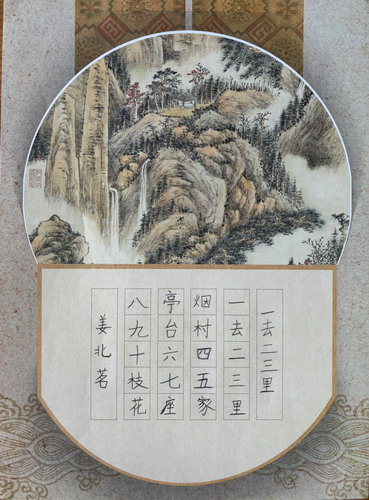 一去二三里
一去二三里
烟村四五家
亭台六七座
八九十枝花
姜北茗